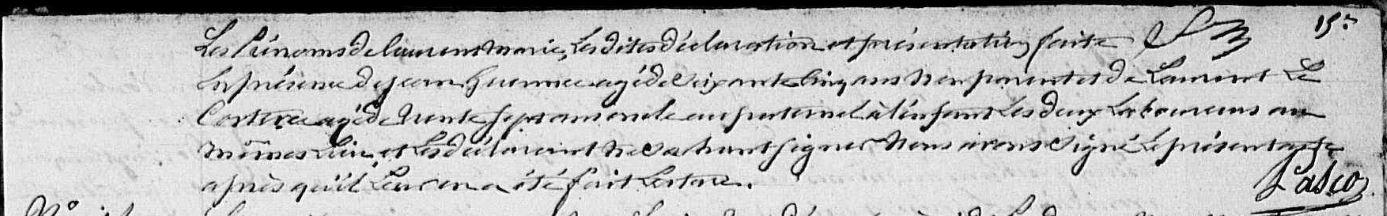 15e
Les prénoms de laurent marie, Lesdites déclaration et présentation faite
En présence de jean agé de soixante cinq ans non parent et de Laurent Le
agé de trente sept ans oncle au paternel à l'enfant Les deux Laboureurs au
même Lieu, et Les déclarants ne sachant signer Nous avons signé Le présent acte
après qu'il Leur en a été fait Lecture.
Lasco